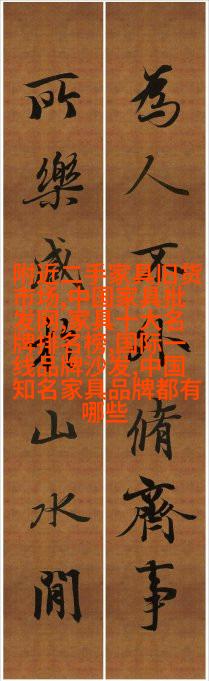 為人不外脩齊事
所樂咸山水間
附近二手家具旧货
市场,中国家具批
发网,家具十大名
牌排名榜,国际一
线品牌沙发,中国
知名家具品牌都有
哪些